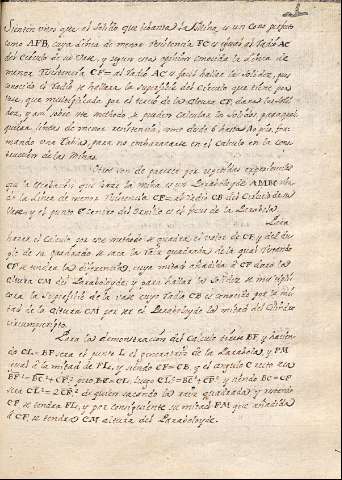 Sienten otros que el Solido que lebanta la Mina, es un Cono perfecto
como AFB, cuya Linea de menor Resistencia FC es igual al Radio AC
del Circulo de su Vase, y segun esta opinion conocida la Linea de
menor Resistencia CF = al Radio AC es facil hallar la Solidez, pues
conocido el Radio se hallara la superficie del Circulo que tiene por
vase, que multiplicada por el tercio de la altura CF, dara la soli-
dez, y asi sobre este methodo se pueden calcular los Solidos para qual
quiera Linea de menor resistencia, como desde 6 hasta 40 pies, for
mando una Tabla, para no embarazarse en el Calculo en la cons
truccion de las Minas.
Otros son de parecer por repetidas experiencias
que la escabacion que hace la mina es un Paraboloyde
de la Linea de menor Resistencia CF = al Radio CB del Circulo de su
Vase, y el punto F Centro del Ornillo es el focus de la Parabola.
Para
hacer el Calculo por este methodo se quadra el valor de CF, y del du-
plo de su quadrado se saca la raiz quadrada de la qual restando
CF se tendra la diferencia, cuya mitad añadida a CF dara la
altura CM del Paraboloyde; y para hallar la Solidez se multipli-
cara la superficie de la vase cuyo Radio CB es conocido por la mi-
tad de la altura CM por ser el Paraboloyde la mitad del Cilindro
circunscripto.
Para la demonstracion del Calculo tirese BF, y hacien-
do CL = BF sera el punto L el generatriz de la Parabola, y FM
igual a la mitad de FL, y siendo CF = CB, y el angulo C recto sera
BF² = BC² + CF² pero BF = CL, luego CL² = BC² + CF² y siendo BC = CF
sera CL² = 2CF² de quien sacando la raiz quadrada, y restando
CF se tendra FL, y por consiguiente su mitad FM que añadida
a CF se tendra CM altura del Paraboloyde.